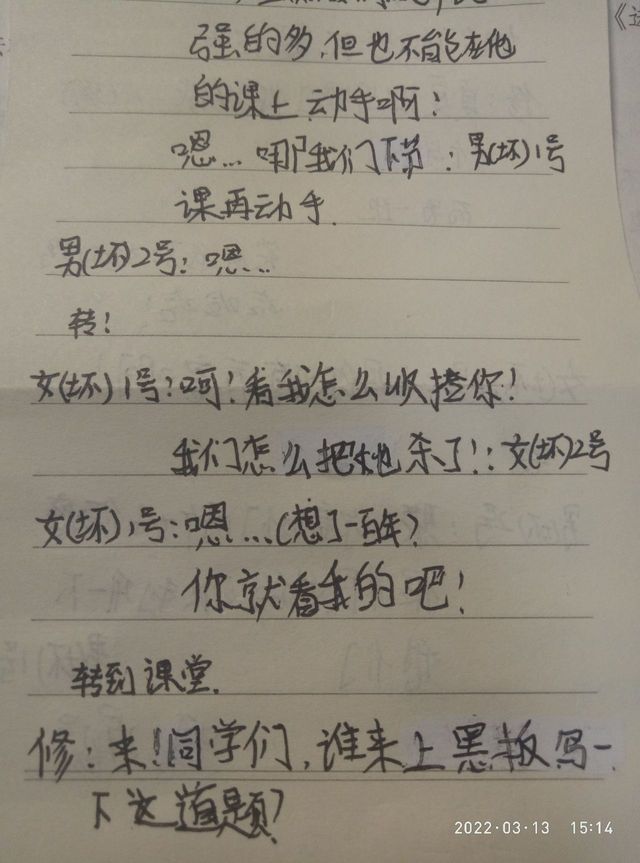 强的多,但也不能在他
的课上动手啊!
嗯...哪我们下节:男(坏)1号
课再动手.
男(坏)2号:嗯...
转!
女(坏)1号:呵!看我怎么收揸你!
我们怎么把她杀了!:女(坏)2号
女(坏)1号:嗯...(想了一百年?
你就看我的吧!
转到课堂.
修:来!同学们,谁来上黑板写一
下这道题?
2022·03·13 15:14